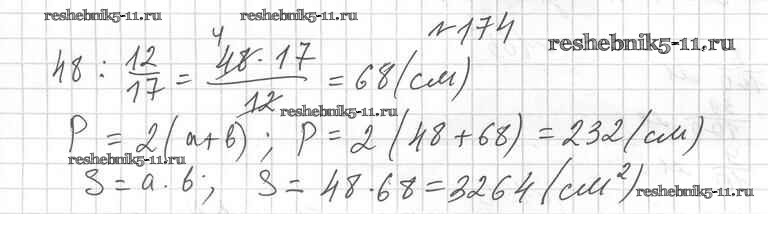 reshebnik5-11.ru reshebnik5-11.ru
№174
reshebnik5-11.ru
48 : 12/17 = 48·17/12 = 68 (см)
4
reshebnik5-11.ru
P = 2(a+b); P = 2(48+68) = 232 (см)
reshebnik5-11.ru
S = a·b; S = 48·68 = 3264 (см²)
reshebnik5-11.ru